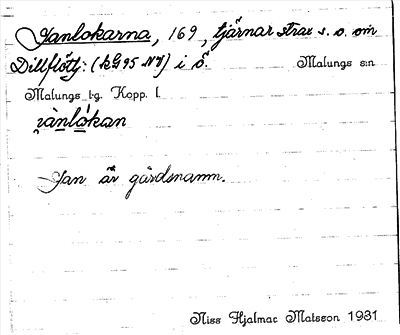 Janlokarna, 169, tjärnar strax s. o. om
Dillflöttj: (kG95 NV) i ö. Malungs sn
Malungs tg. Kopp. l.
jànlókan
Jan är gårdsnamn.
Niss Hjalmar Matsson 1931